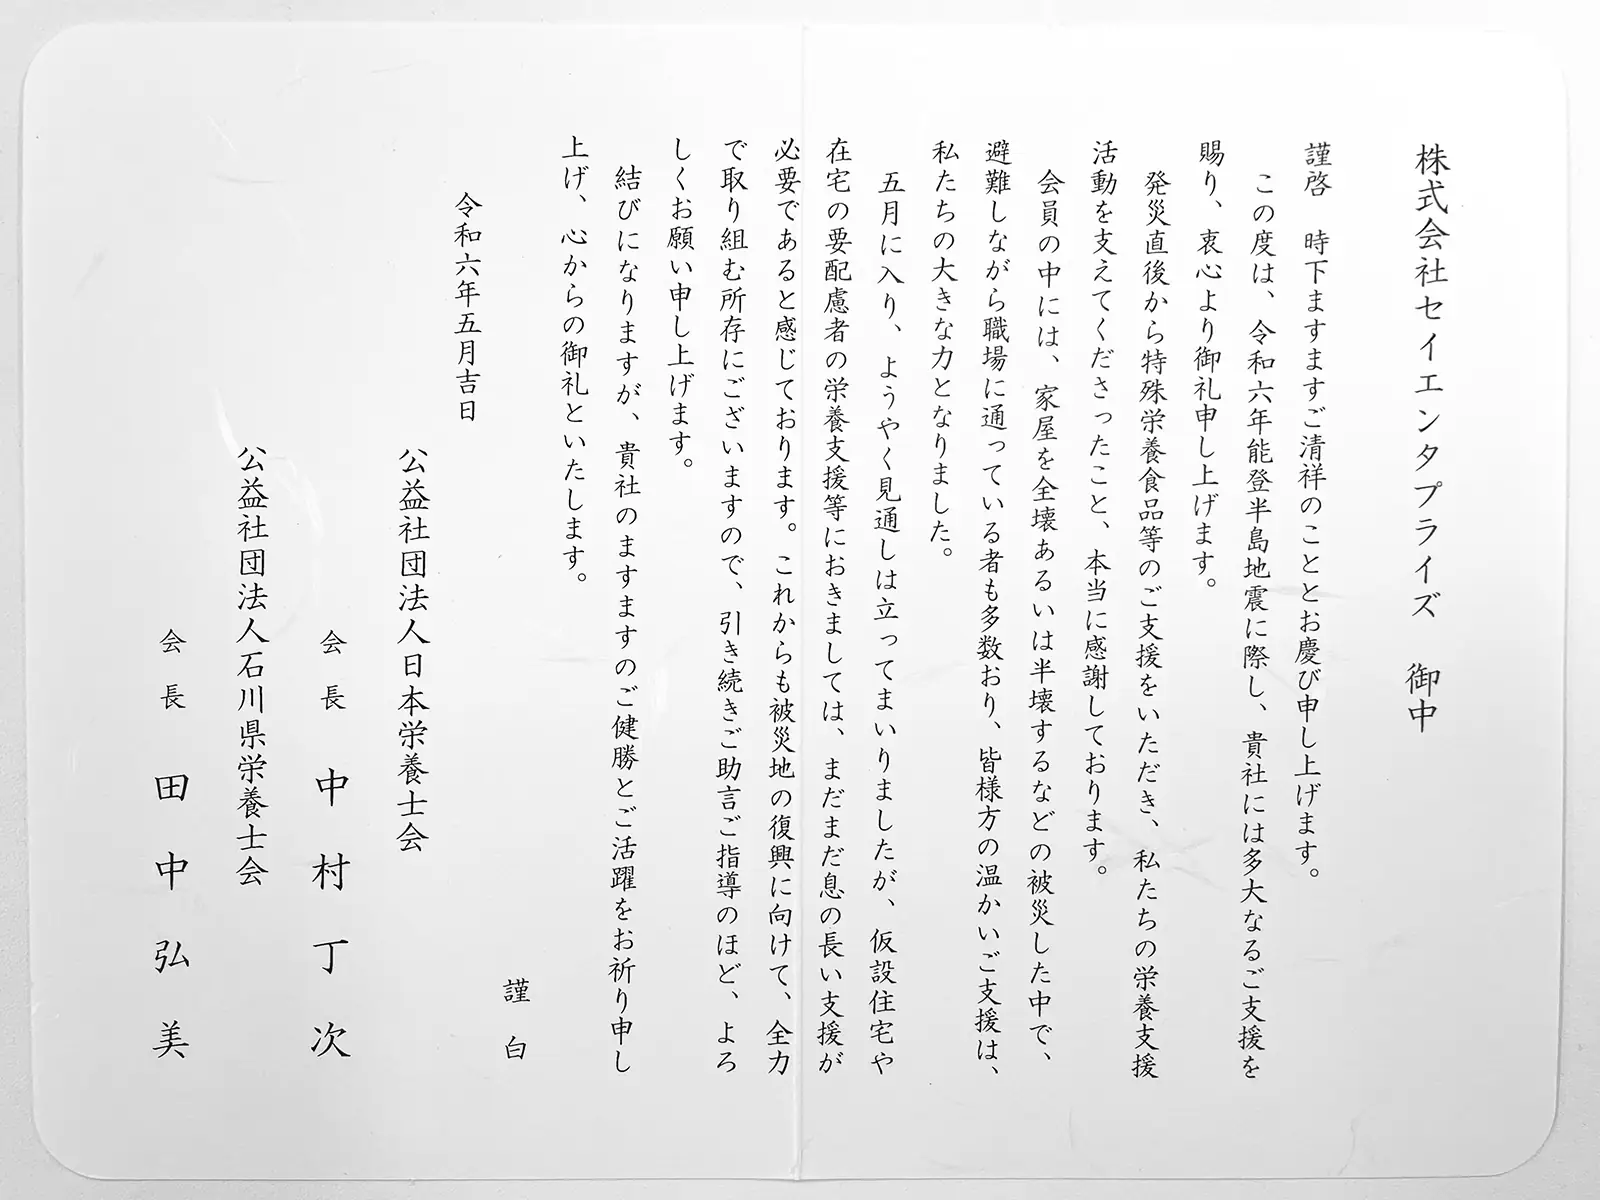 株式会社セイエンタプライズ　御中
謹啓　時下ますますご清祥のこととお慶び申し上げます。
この度は、令和六年能登半島地震に際し、貴社には多大なるご支援を
賜り、衷心より御礼申し上げます。
発災直後から特殊栄養食品等のご支援をいただき、私たちの栄養支援
活動を支えてくださったこと、本当に感謝しております。
会員の中には、家屋を全壊あるいは半壊するなどの被災した中で、
避難しながら職場に通っている者も多数おり、皆様方の温かいご支援は、
私たちの大きな力となりました。
五月に入り、ようやく見通しは立ってまいりましたが、仮設住宅や
在宅の要配慮者の栄養支援等におきましては、まだまだ息の長い支援が
必要であると感じております。これからも被災地の復興に向けて、全力
で取り組む所存にございますので、引き続きご助言ご指導のほど、よろ
しくお願い申し上げます。
結びになりますが、貴社のますますのご健勝とご活躍をお祈り申し
上げ、心からの御礼といたします。
謹白
令和六年五月吉日
公益社団法人日本栄養士会
会長　中村丁次
公益社団法人石川県栄養士会
会長　田中弘美